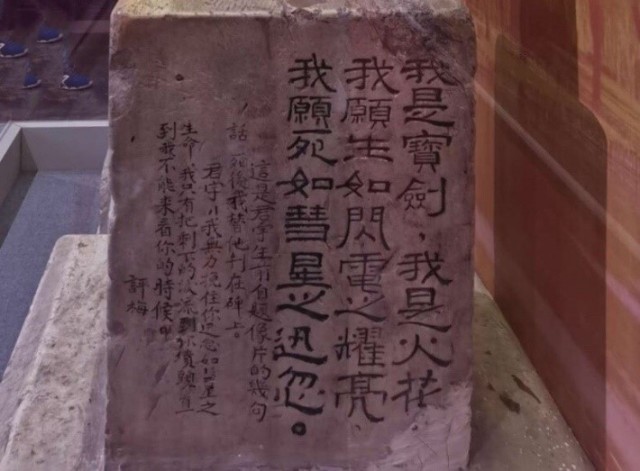 我是寶劍、我是火花
我願生如閃電之耀亮、
我願死如彗星之迅忽。
這是君宇生前自題像片的幾句
話，死後我替他刊在碑上。
君宇！我無力挽住你迅忽如彗星之
生命，我只有把剩下的淚流到你墳頭，直
到我不能來看你的時候。
評梅